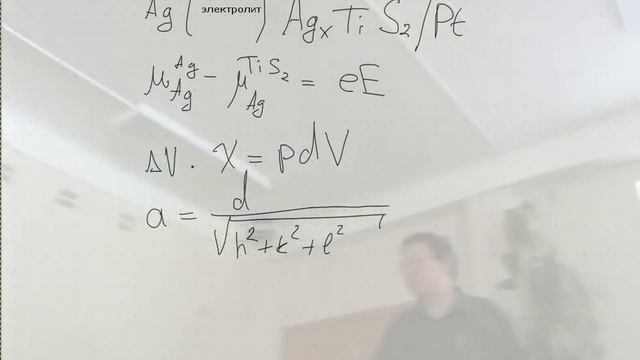 Ag | электролит | AgₓTiS₂/Pt
μ_Ag^Ag − μ_Ag^TiS₂ = eE
ΔV · X = pdV
a = d / √(h² + k² + l²)